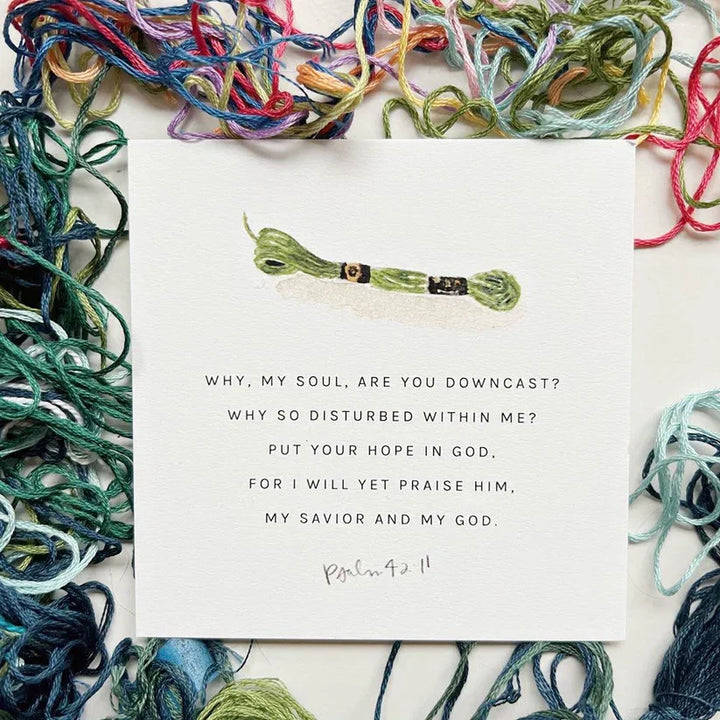 WHY, MY SOUL, ARE YOU DOWNCAST?
WHY SO DISTURBED WITHIN ME?
PUT YOUR HOPE IN GOD,
FOR I WILL YET PRAISE HIM,
MY SAVIOR AND MY GOD.
Psalm 42:11